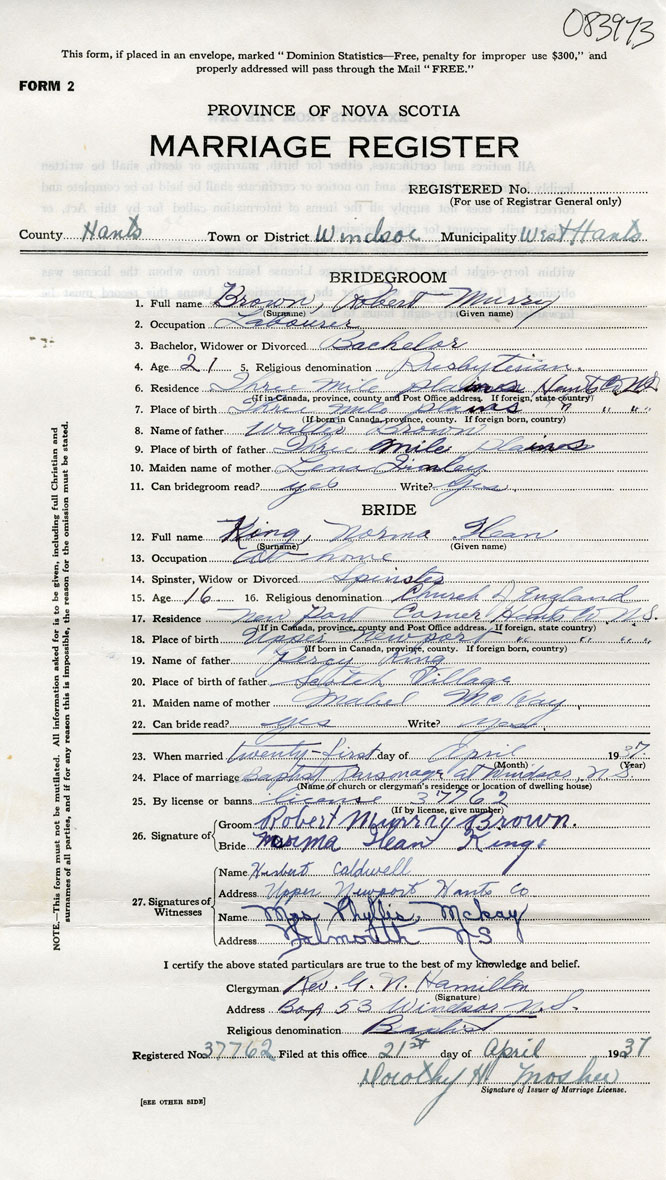 083973
This form, if placed in an envelope, marked "Dominion Statistics—Free, penalty for improper use $300," and
properly addressed will pass through the Mail "FREE."
FORM 2
PROVINCE OF NOVA SCOTIA
MARRIAGE REGISTER
REGISTERED No.
(For use of Registrar General only)
County Hants Town or District Windsor Municipality West Hants
BRIDEGROOM
1. Full name Brown, Robert Murry
(Surname) (Given name)
2. Occupation Labourer
3. Bachelor, Widower or Divorced Bachelor
4. Age 21 5. Religious denomination Presbyterian.
6. Residence Three Mile plaines Hants Co NS
(If in Canada, province, county and Post Office address. If foreign, state country)
7. Place of birth Three Mile plains " " "
(If born in Canada, province, county. If foreign born, country)
8. Name of father Brown
9. Place of birth of father Three Mile plaines
10. Maiden name of mother Lena
11. Can bridegroom read? yes Write? yes
BRIDE
12. Full name King, Norma Jean
(Surname) (Given name)
13. Occupation at home
14. Spinster, Widow or Divorced Spinster
15. Age 16 16. Religious denomination Church England
17. Residence New Port Corner, Hants Co N.S.
(If in Canada, province, county and Post Office address. If foreign, state country)
18. Place of birth Upper Newport " " "
(If born in Canada, province, county. If foreign born, country)
19. Name of father Percy King
20. Place of birth of father Scotch Village
21. Maiden name of mother Mabel McKay
22. Can bride read? yes Write? yes
23. When married twenty-first day of April 1937
(Month) (Year)
24. Place of marriage Baptist Parsonage at Windsor, N.S.
(Name of church or clergyman's residence or location of dwelling house)
25. By license or banns license 37762
(If by license, give number)
26. Signature of
Groom Robert Murry Brown.
Bride Norma Jean King
27. Signatures of Witnesses
Name Herbert Caldwell
Address Upper Newport Hants Co
Name Mrs Phyllis Mckay
Address Falmouth NS
I certify the above stated particulars are true to the best of my knowledge and belief.
Clergyman Rev. G. N. Hamilton
(Signature)
Address Box 53 Windsor N.S.
Religious denomination Baptist
Registered No. 37762 Filed at this office 21st day of April 1937
Dorothy H Mosher
Signature of Issuer of Marriage License.
[SEE OTHER SIDE]
NOTE.—This form must not be mutilated. All information asked for is to be given, including full Christian and
surnames of all parties, and if for any reason this is impossible, the reason for the omission must be stated.